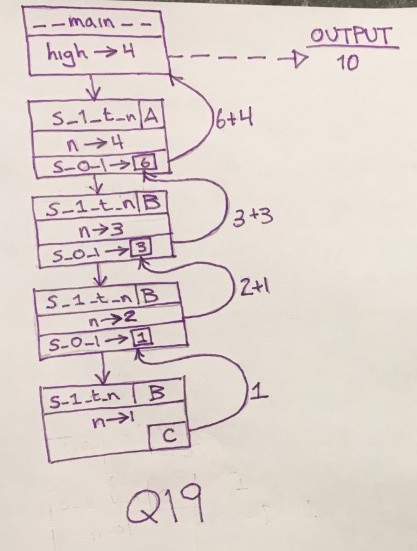 __main__
high → 4
OUTPUT
10
S_1_t_n A
n → 4
S_0_1 → 6
6+4
S_1_t_n B
n → 3
S_0_1 → 3
3+3
S_1_t_n B
n → 2
S_0_1 → 1
2+1
S_1_t_n B
n → 1
C
1
Q19